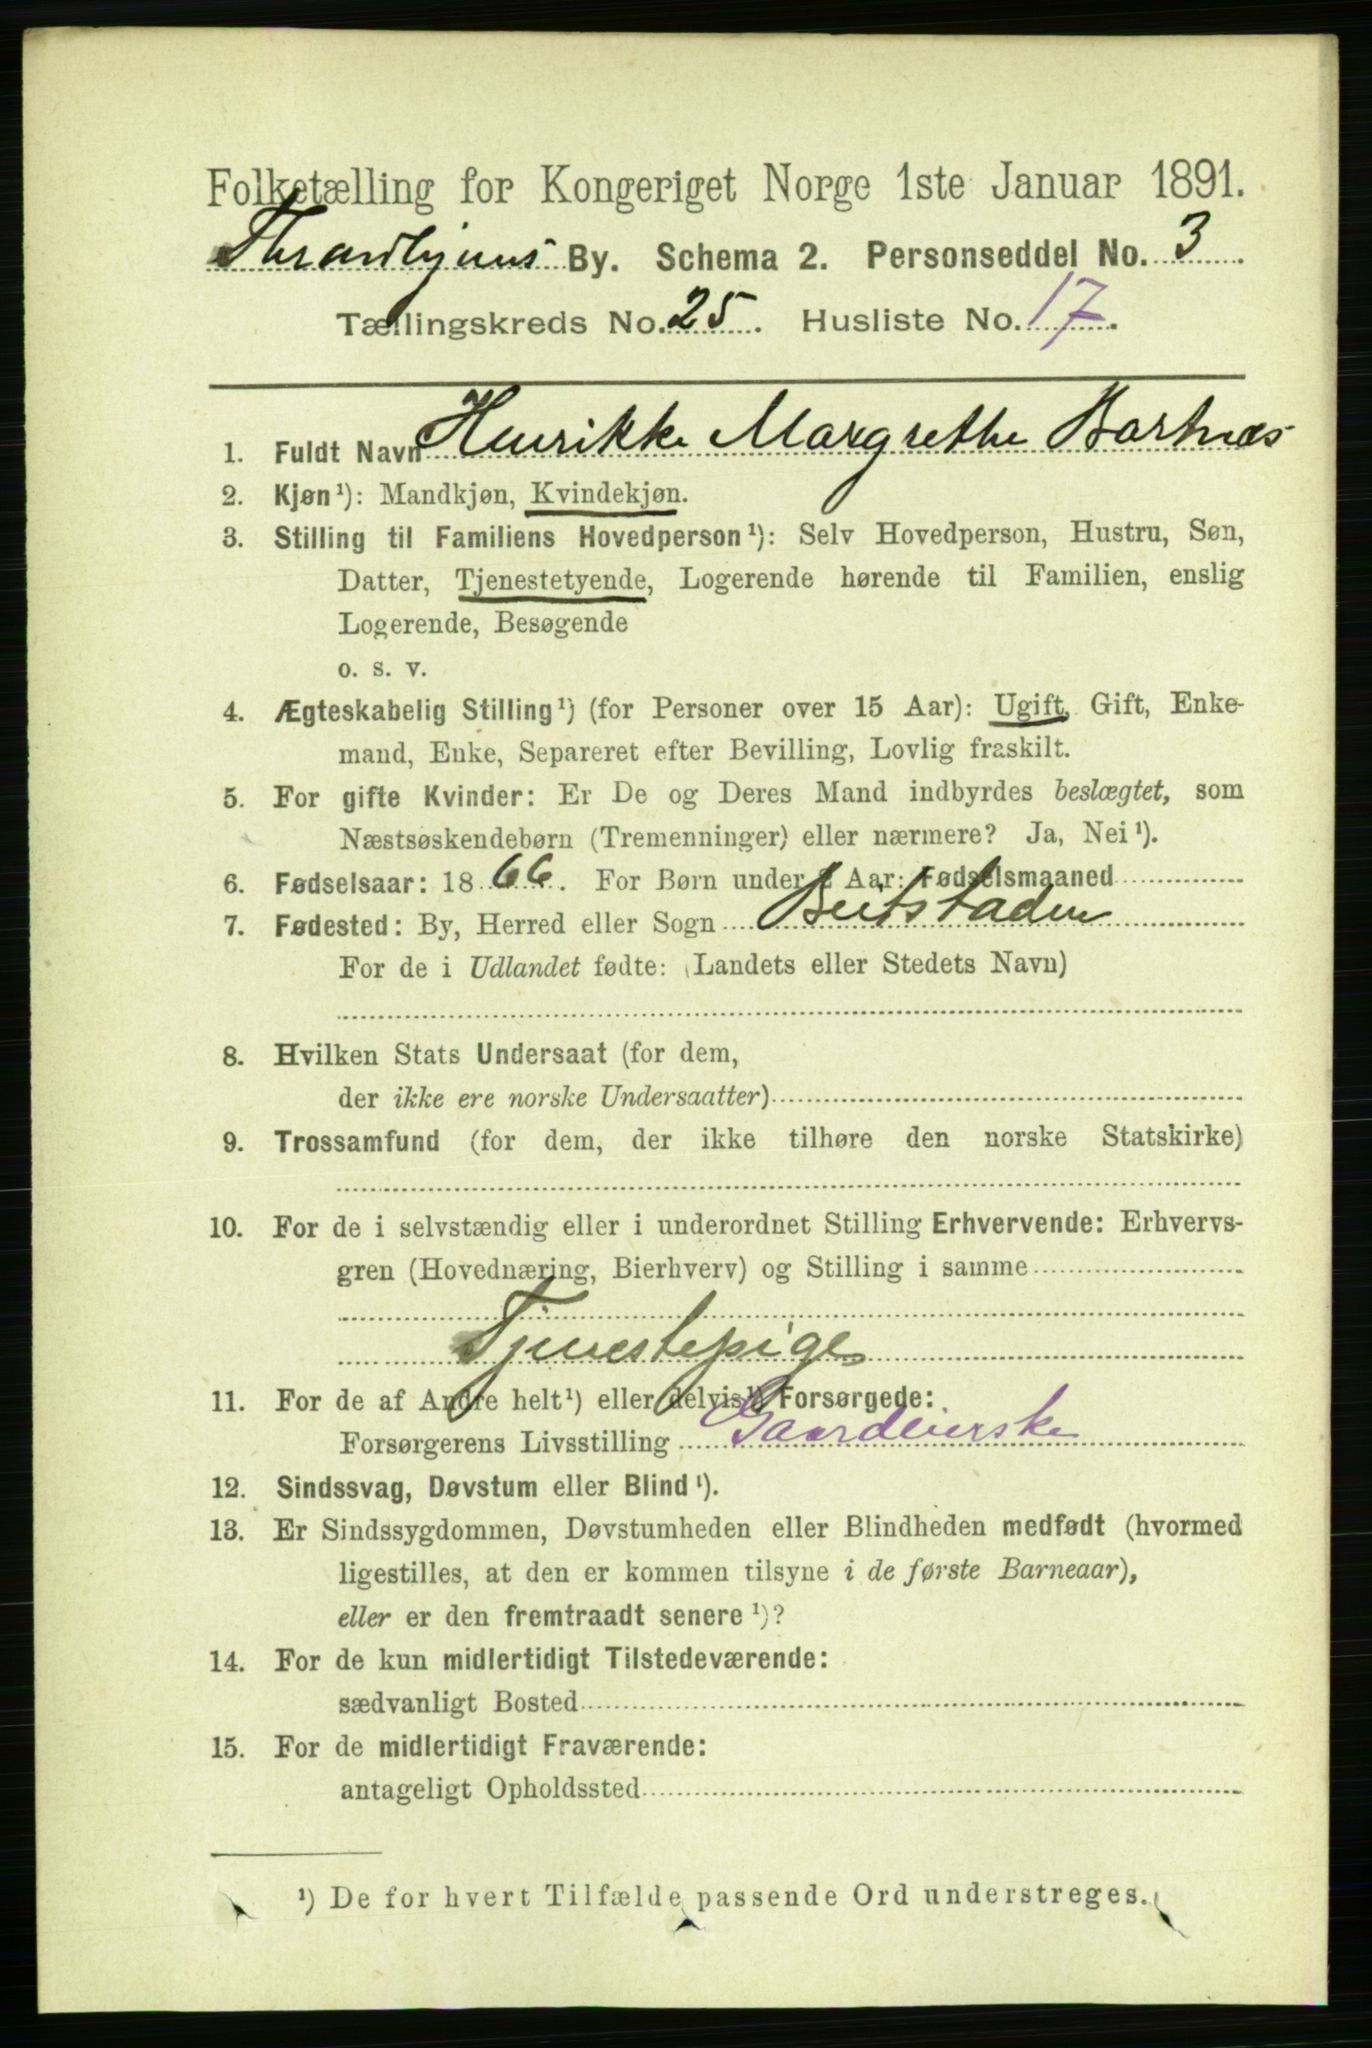 Folketælling for Kongeriget Norge 1ste Januar 1891.
Throndhjems By. Schema 2. Personseddel No. 3.
Tællingskreds No. 25. Husliste No. 17.
1. Fuldt Navn Henrikke Margrethe Bartnæs
2. Kjøn¹): Mandkjøn, Kvindekjøn.
3. Stilling til Familiens Hovedperson¹): Selv Hovedperson, Hustru, Søn,
Datter, Tjenestetyende, Logerende hørende til Familien, enslig
Logerende, Besøgende
o. s. v.
4. Ægteskabelig Stilling¹) (for Personer over 15 Aar): Ugift, Gift, Enke-
mand, Enke, Separeret efter Bevilling, Lovlig fraskilt.
5. For gifte Kvinder: Er De og Deres Mand indbyrdes beslægtet, som
Næstsøskendebørn (Tremenninger) eller nærmere? Ja, Nei¹).
6. Fødselsaar: 1866. For Børn under 2 Aar: Fødselsmaaned
7. Fødested: By, Herred eller Sogn Beitstaden
For de i Udlandet fødte: (Landets eller Stedets Navn)
8. Hvilken Stats Undersaat (for dem,
der ikke ere norske Undersaatter)
9. Trossamfund (for dem, der ikke tilhøre den norske Statskirke)
10. For de i selvstændig eller i underordnet Stilling Erhvervende: Erhvervs-
gren (Hovednæring, Bierhverv) og Stilling i samme
Tjenestepige
11. For de af Andre helt¹) eller delvis¹) Forsørgede:
Forsørgerens Livsstilling Gaardeierske
12. Sindssvag, Døvstum eller Blind¹).
13. Er Sindssygdommen, Døvstumheden eller Blindheden medfødt (hvormed
ligestilles, at den er kommen tilsyne i de første Barneaar),
eller er den fremtraadt senere¹)?
14. For de kun midlertidigt Tilstedeværende:
sædvanligt Bosted
15. For de midlertidigt Fraværende:
antageligt Opholdssted
¹) De for hvert Tilfælde passende Ord understreges.